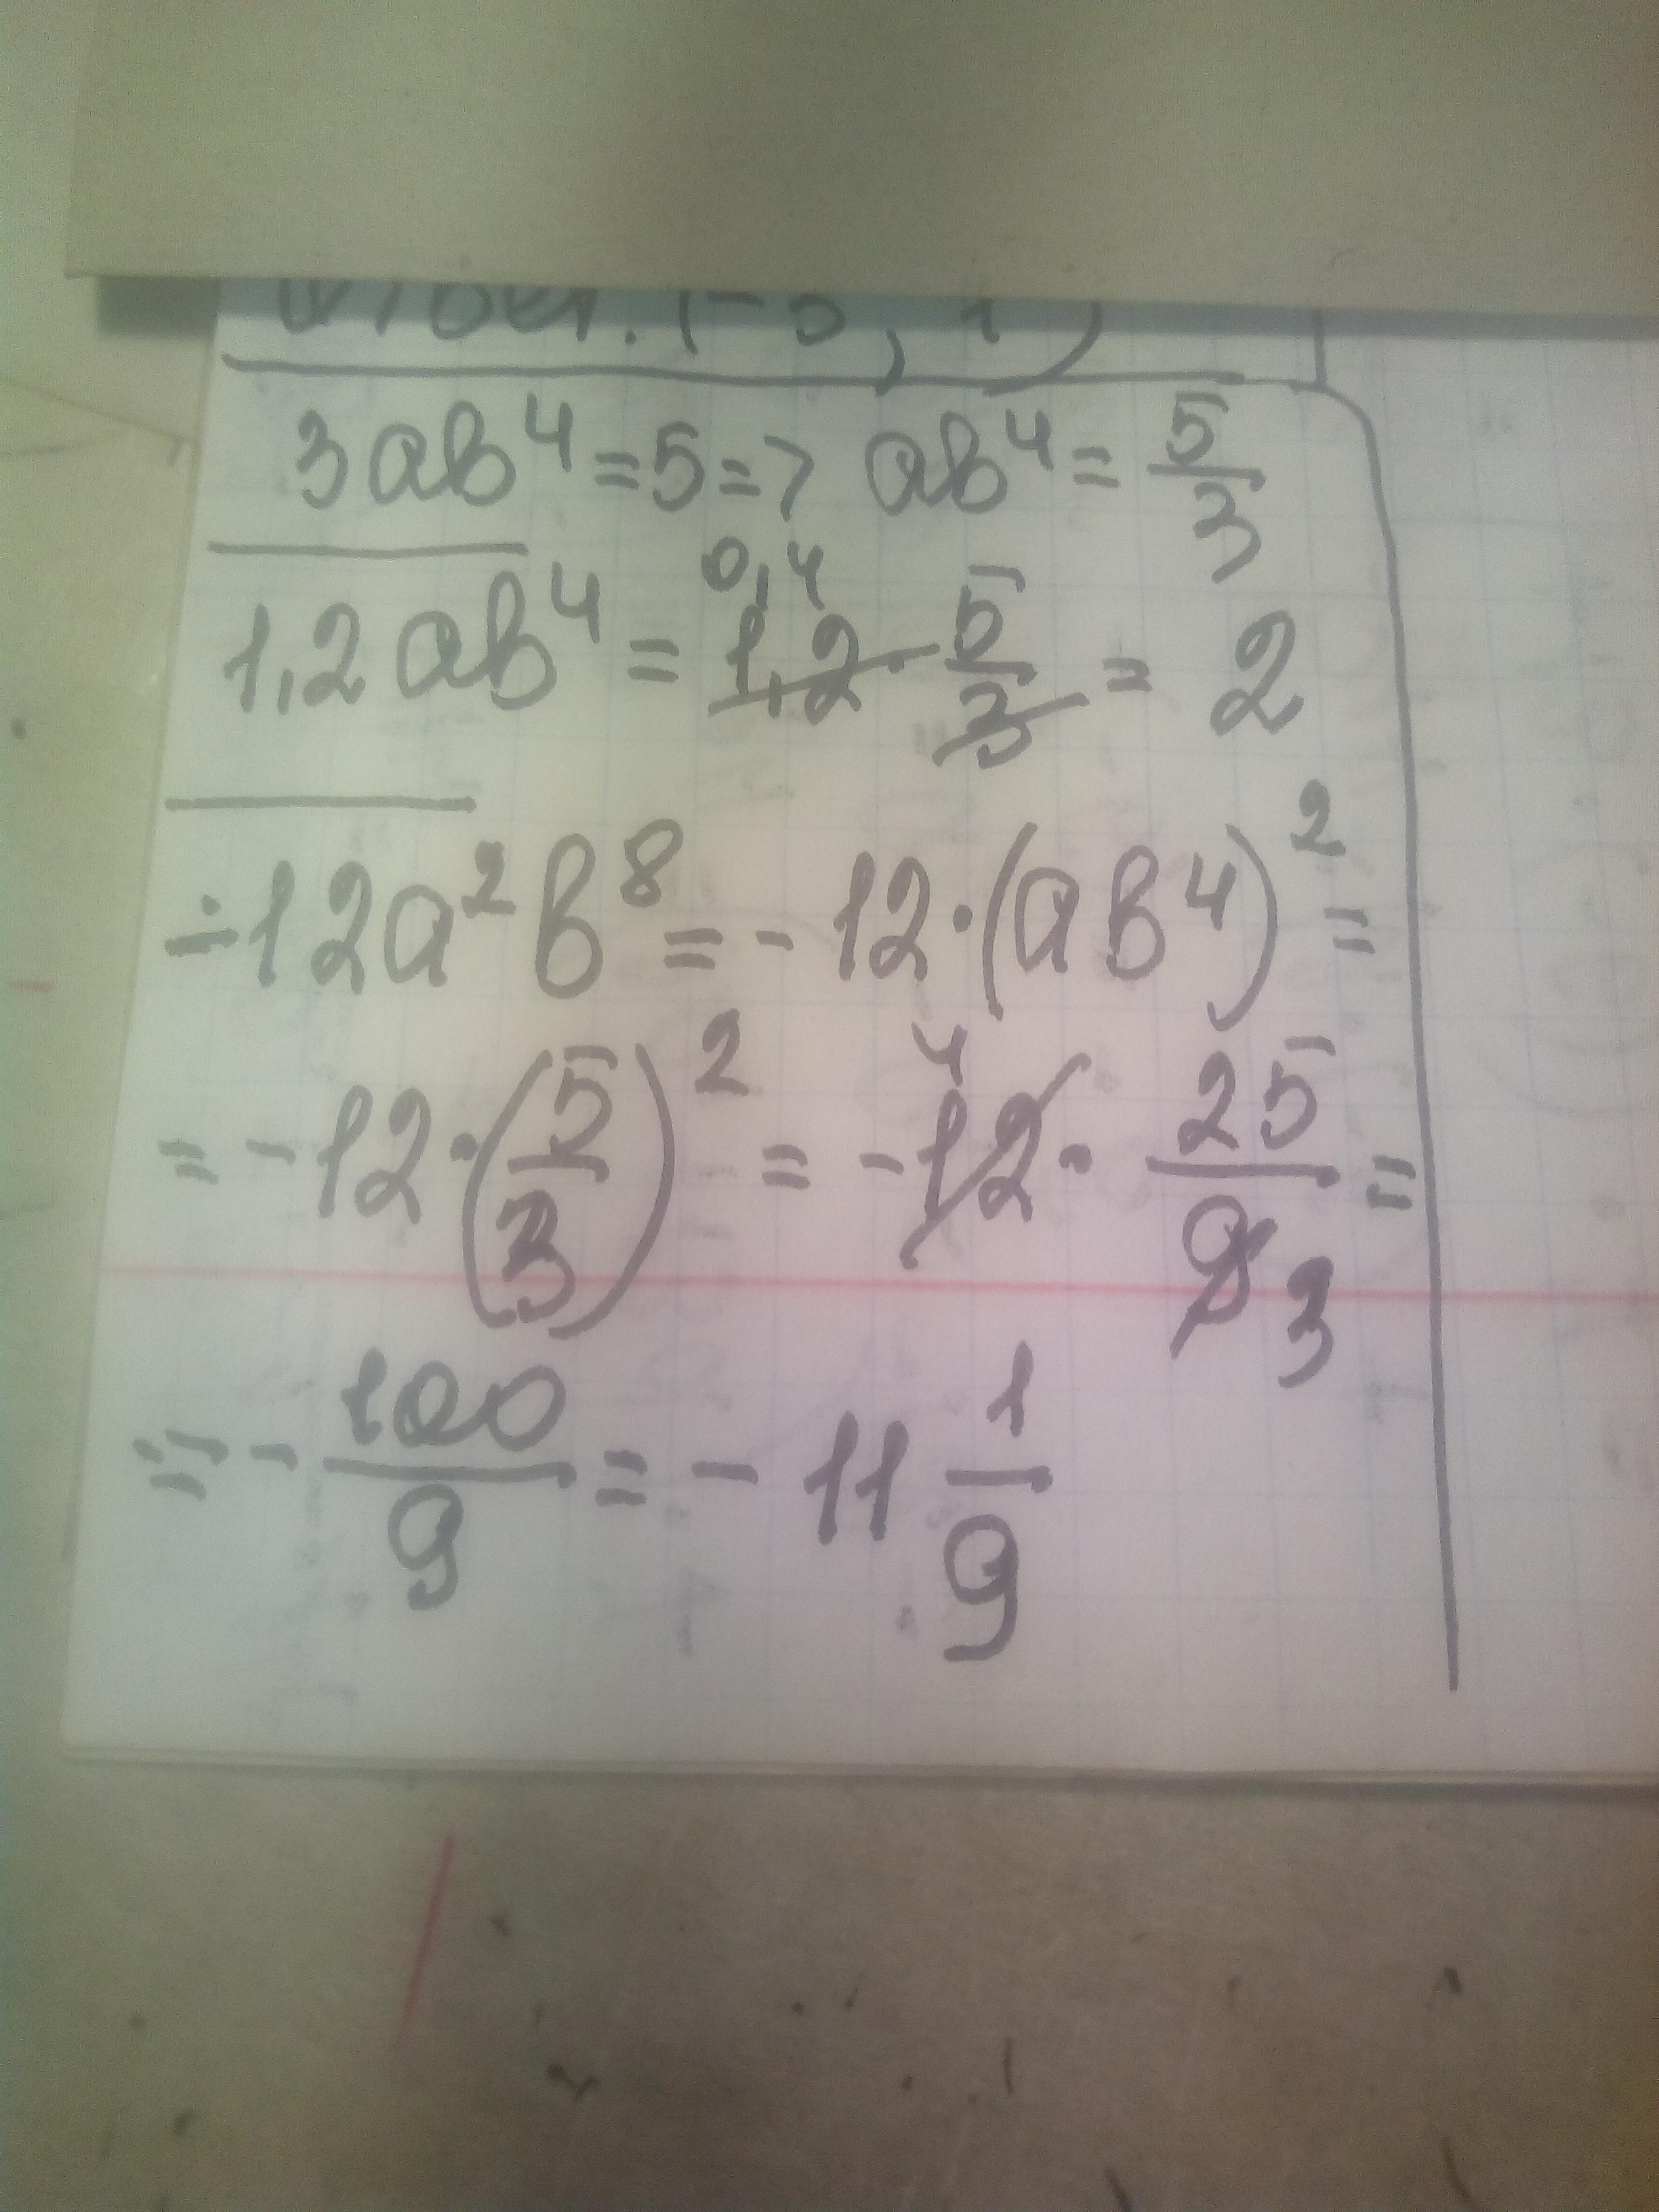 Ответ: (-5; 1)
3ab⁴=5=> ab⁴= 5/3
1,2ab⁴ = 1,2 0,4 · 5/3 = 2
-12a²b⁸=-12·(ab⁴)²=
=-12·(5/3)²=-12 4 · 25/9 3 =
=-100/9=-11 1/9